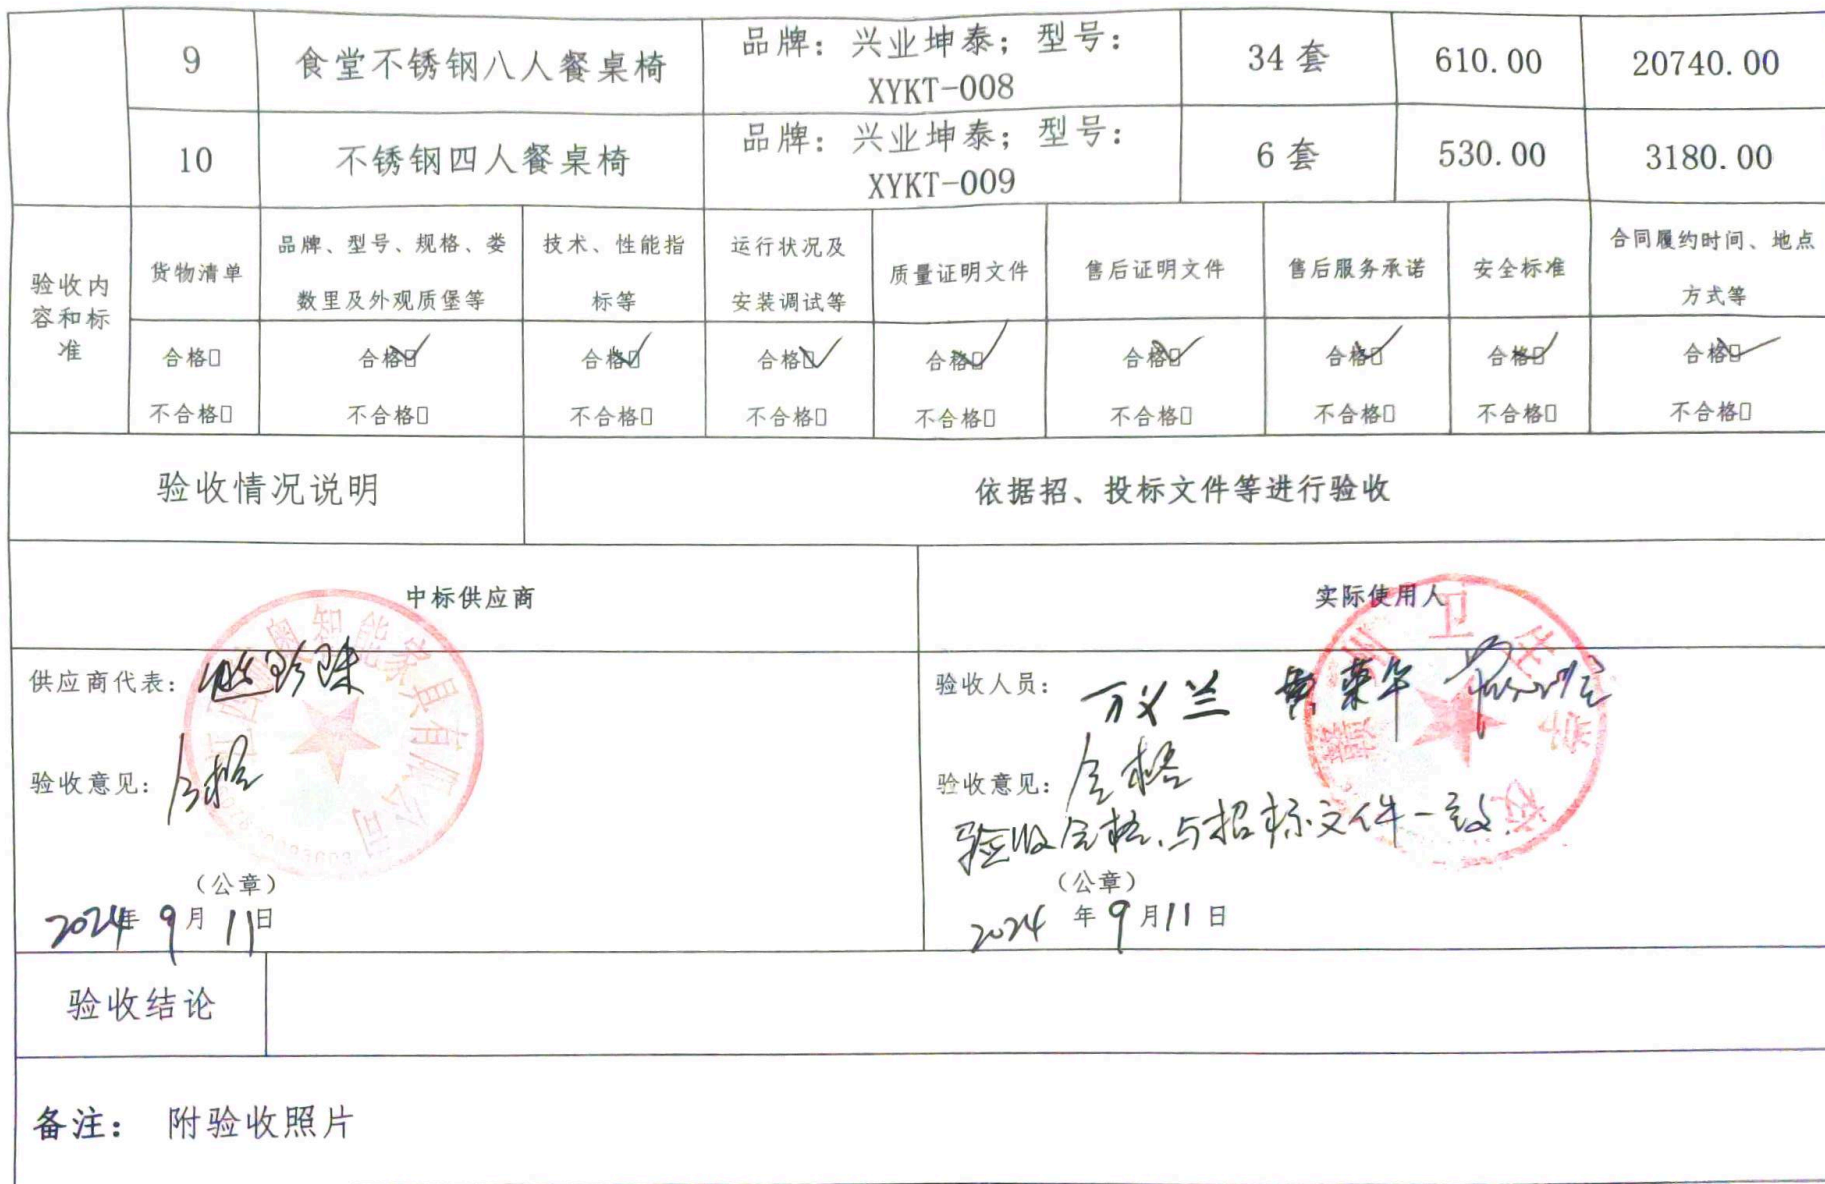 9 食堂不锈钢八人餐桌椅 品牌：兴业坤泰；型号： 34套 610.00 20740.00
XYKT-008
10 不锈钢四人餐桌椅 品牌：兴业坤泰；型号： 6套 530.00 3180.00
XYKT-009
验收内
容和标
准
货物清单
品牌、型号、规格、娄
数里及外观质堡等
技术、性能指
标等
运行状况及
安装调试等
质量证明文件
售后证明文件
售后服务承诺
安全标准
合同履约时间、地点
方式等
合格□ 合格□ 合格□ 合格□ 合格□ 合格□ 合格□ 合格□ 合格□
不合格□ 不合格□ 不合格□ 不合格□ 不合格□ 不合格□ 不合格□ 不合格□ 不合格□
验收情况说明 依据招、投标文件等进行验收
中标供应商 实际使用人
供应商代表：
验收意见：合格
（公章）
2024年9月11日
智能家具有限公司
验收人员：万义兰
验收意见：合格
验收合格、与招标文件一致.
（公章）
2024年9月11日
赣州卫生学校
验收结论
备注： 附验收照片